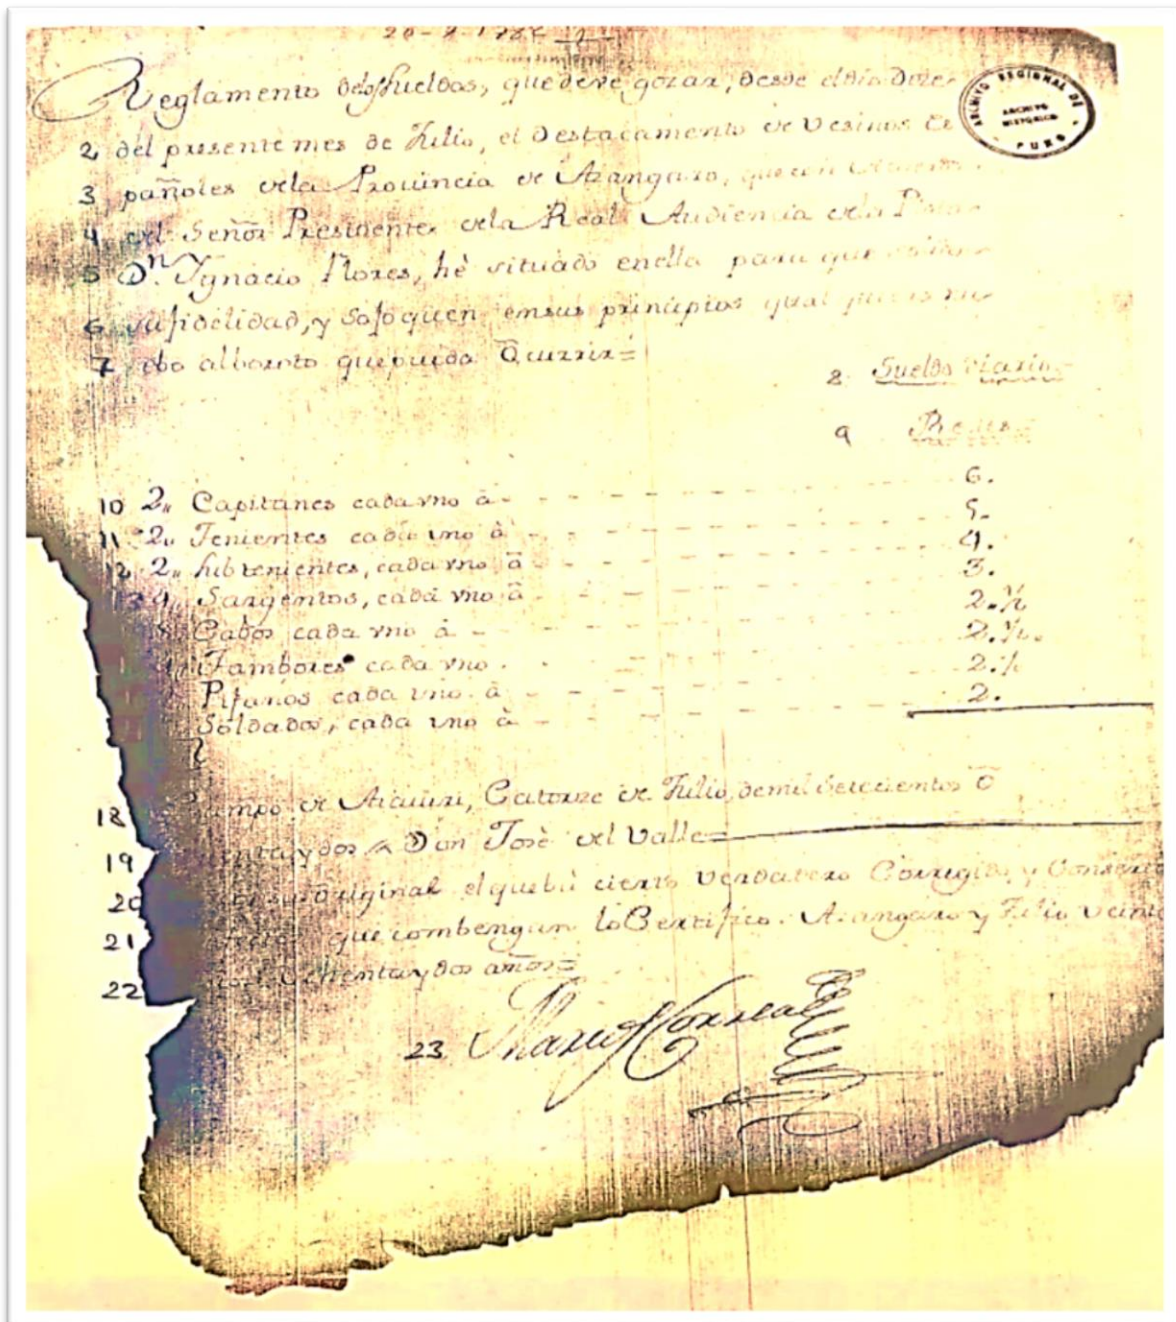 Reglamento delos Sueldos, que deve gozar, desde el dia doze
ARCHIVO REGIONAL DE PUNO
ARCHIVO HISTORICO
2 del presente mes de Julio, el Destacamento de Vesinos Es
3 pañoles dela Provincia de Azangaro, que con
4 del Señor Presidente dela Real Audiencia dela Plata
5 Dn. Ygnacio Flores, hè situado enella para que
6 su fidelidad, y Sofoquen ensus principios qual
7 alboroto que pueda Ocurrir=
8 Sueldo diario
9 Reales
10 2,, Capitanes cada vno â 6.
11 2,, Tenientes cada vno â 5.
12 2,, Subtenientes, cada vno â 4.
13 4,, Sargentos, cada vno â 3.
8 Cabos cada vno â 2.½
Tambores cada vno. 2.½.
Pifanos cada vno. â 2.½
Soldados, cada vno â 2.
18 Campo de Catorze de Julio, demil Setecientos O
19 entaydos Don Josè del Valle=
20 Original, el que bà cierto Verdadero Corregido, y
21 que combengan loCertifico. Azangaro y Julio veint
22 Ochentaydos años=
23